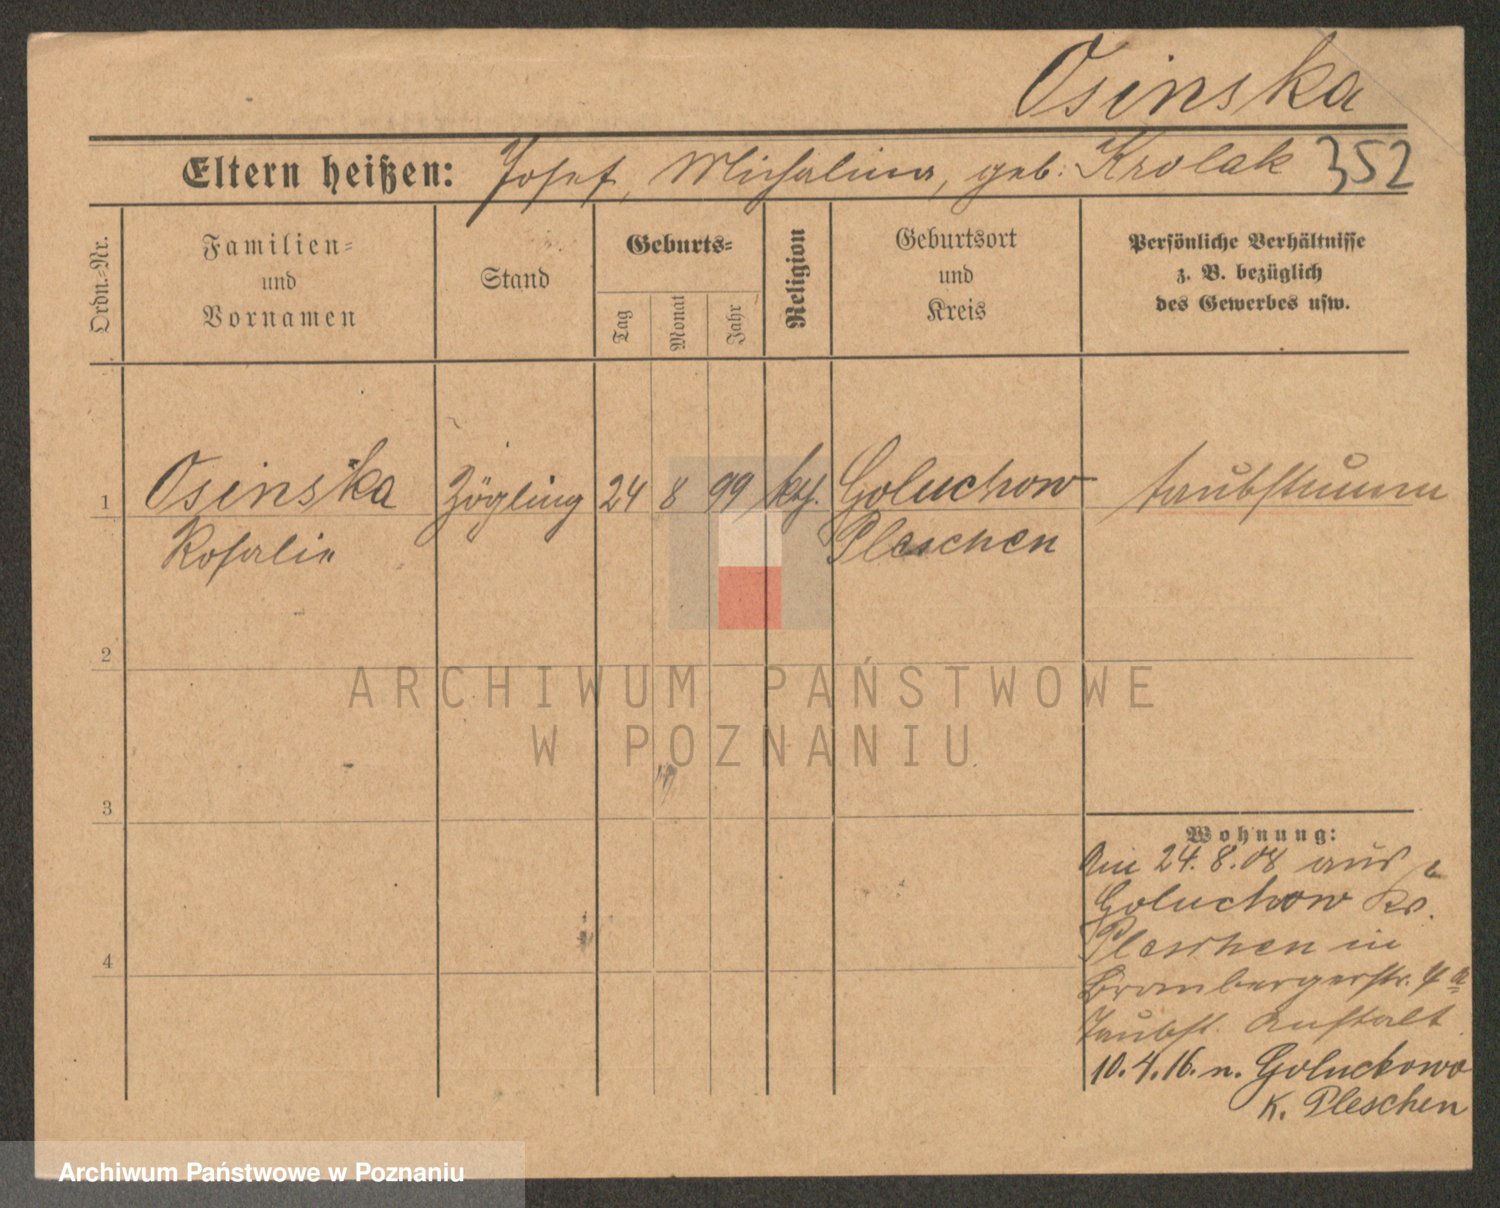 Osinska
Eltern heißen: Josef, Michalina, geb. Krolak 352
Ordn.-Nr.
Familien-
und
Vornamen
Stand
Geburts-
Tag
Monat
Jahr
Religion
Geburtsort
und
Kreis
Persönliche Verhältnisse
z. B. bezüglich
des Gewerbes usw.
1 Osinska Zögling 24 8 99 kth. Goluchow taubstumm
Rosalie Pleschen
2
3
4
Wohnung:
Am 24.8.08 aus
Goluchow Kr.
Pleschen in
Brombergerstr. 4a
Taubst. Anstalt
10.4.16. n. Goluchowo
K. Pleschen
ARCHIWUM PAŃSTWOWE
W POZNANIU
Archiwum Państwowe w Poznaniu